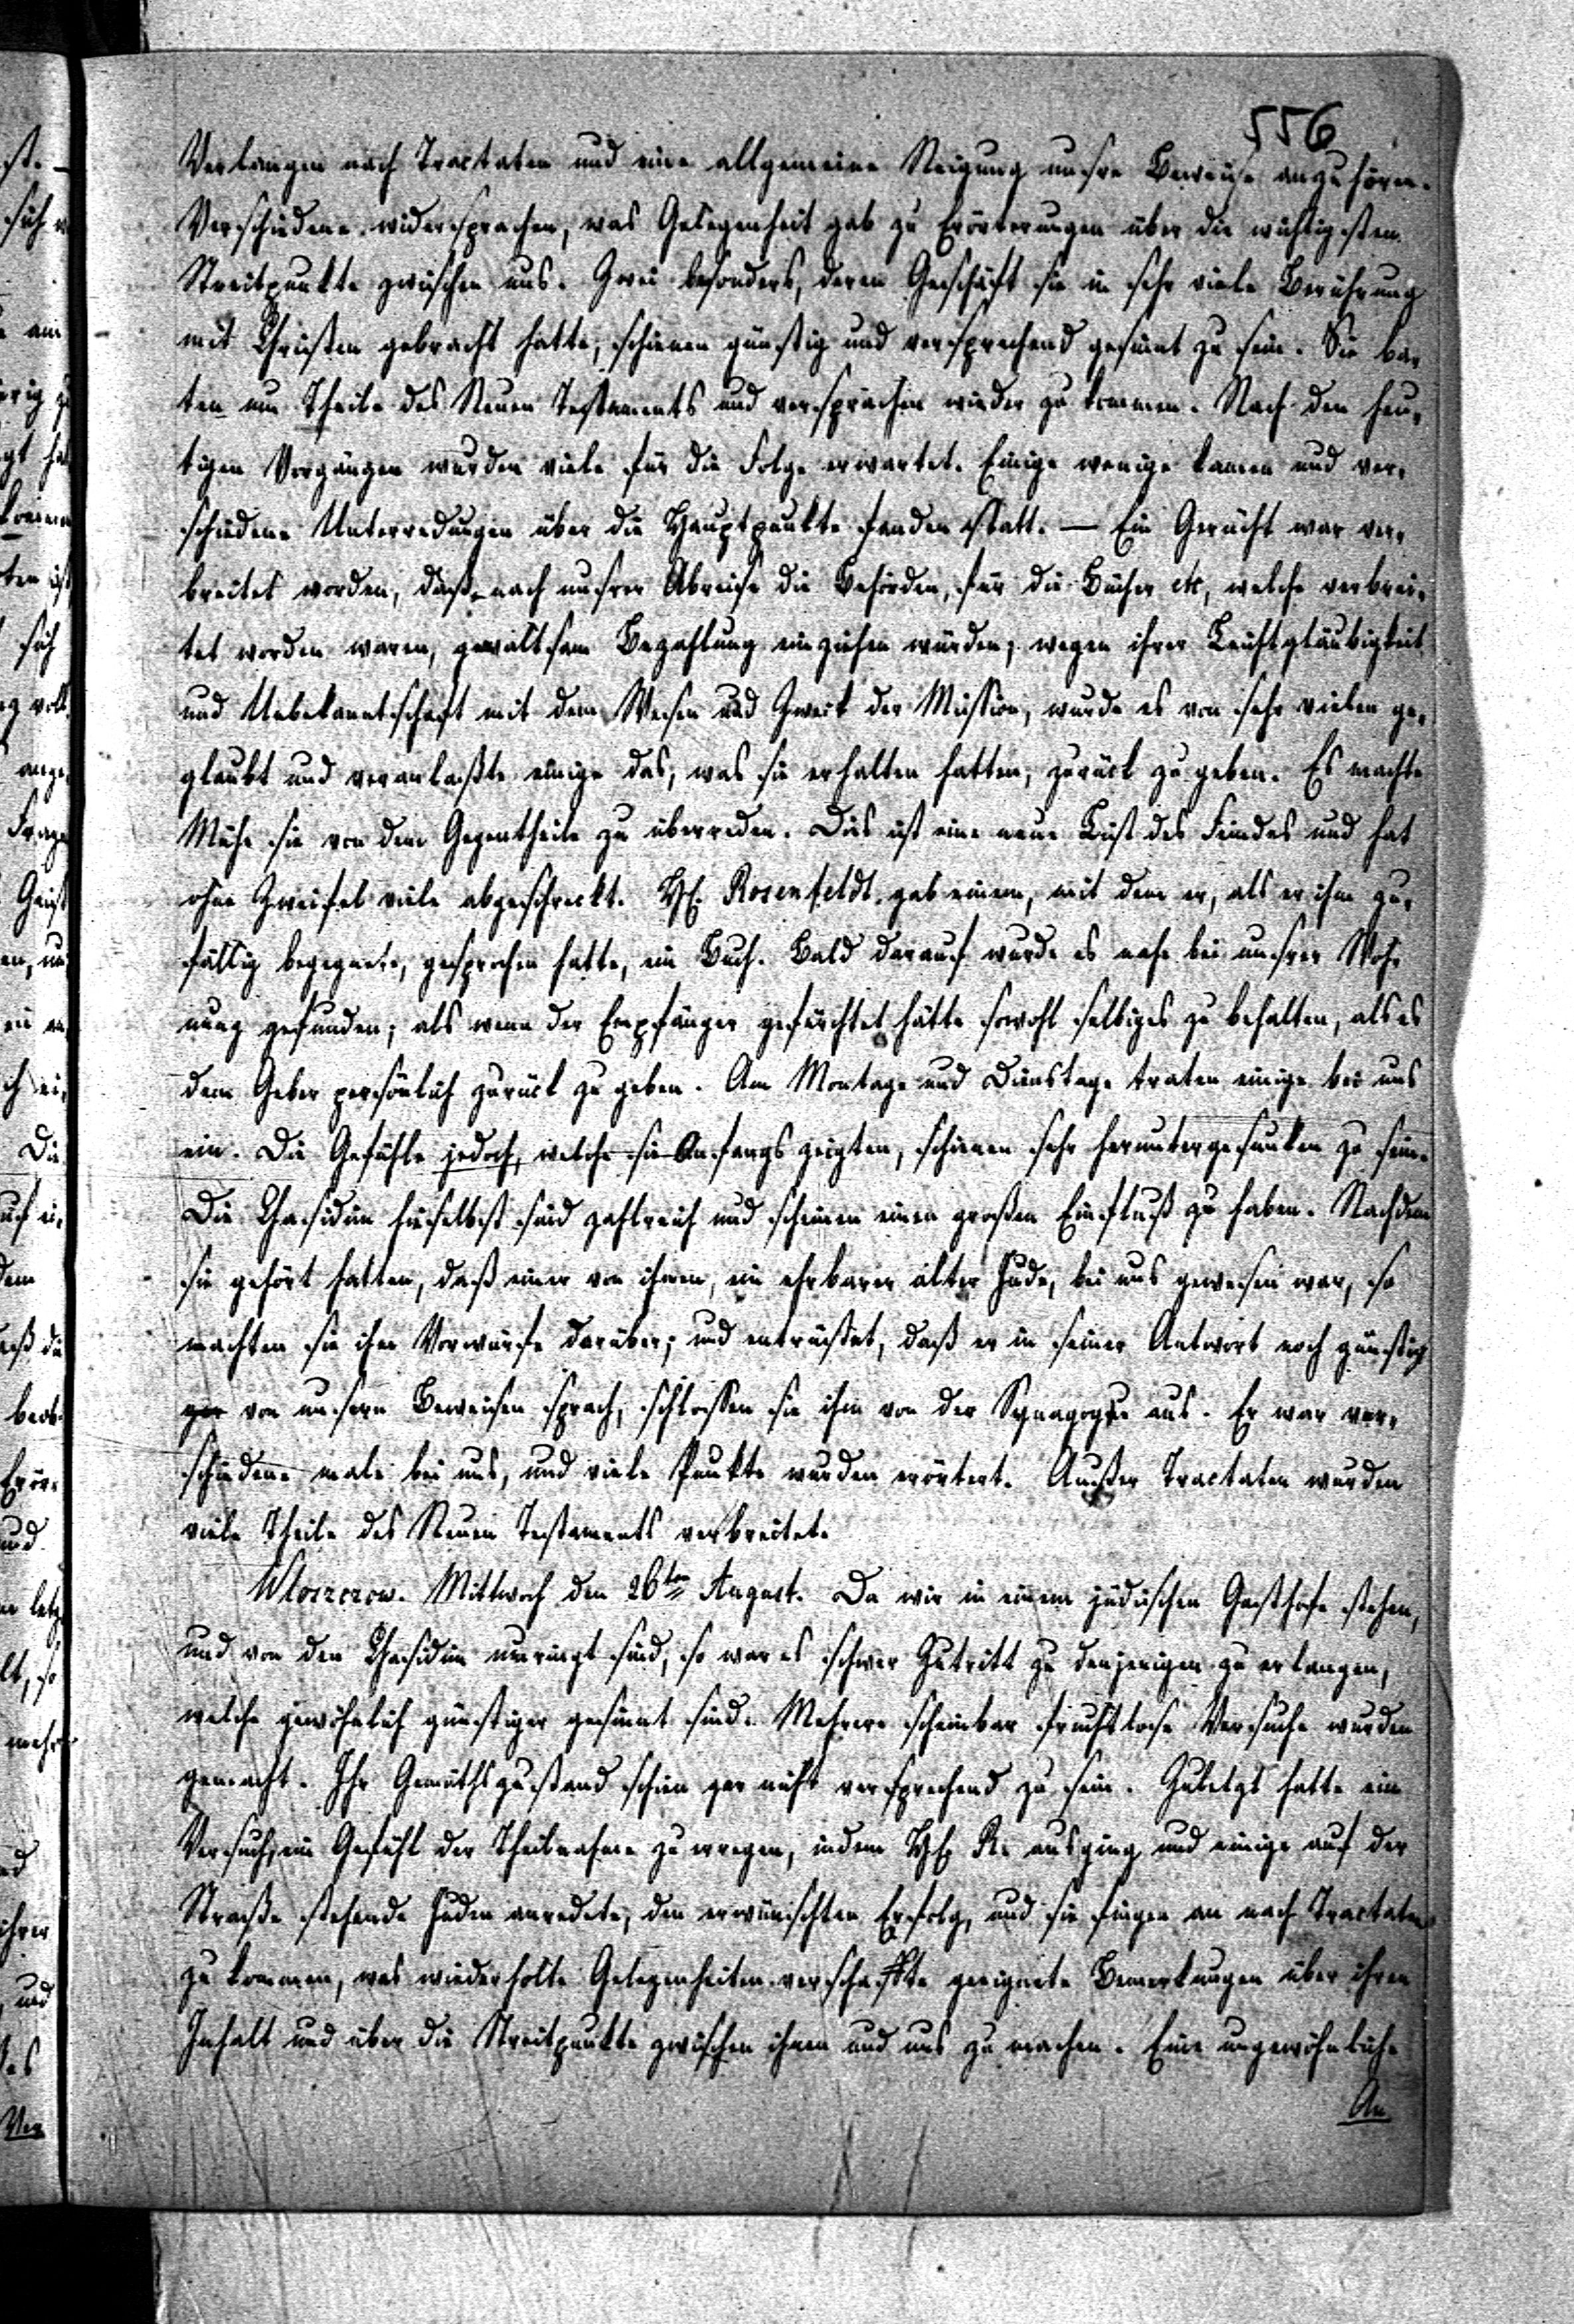 556
Verlangen nach Tractaten und eine allgemeine Neigung unsre Beweise anzuhören.
Verschiedene widersprachen, was Gelegenheit gab zu Erörterungen über die wichtigsten
Streitpunkte zwischen uns. Zwei besonders, deren Geschäft sie in sehr viele Berührung
mit Christen gebracht hatte, schienen günstig und versprechend gesinnt zu sein. Sie ba-
ten um Theile des Neuen Testaments und versprachen wieder zu kommen. Nach den heu-
tigen Vorgängen wurden viele für die Folge erwartet. Einige wenige kamen und ver-
schiedene Unterredungen über die Hauptpunkte fanden statt. — Ein Gerücht war ver-
breitet worden, daß nach unsrer Abreise die Behörden, für die Bücher etc, welche verbrei-
tet worden waren, gewaltsam Bezahlung einziehen würden; wegen ihrer Leichtgläubigkeit
und Unbekanntschaft mit dem Wesen und Zweck der Mission, wurde es von sehr vielen ge-
glaubt und veranlaßte einige das, was sie erhalten hatten, zurück zu geben. Es machte
Mühe sie von dem Gegentheile zu überreden. Dies ist eine neue List des Feindes und hat
ohne Zweifel viele abgeschreckt. H. Rosenfeldt gab einem, mit dem er, als er ihm zu-
fällig begegnete, gesprochen hatte, ein Buch. Bald darauf wurde es nahe bei unsrer Woh-
nung gefunden; als wenn der Empfänger gefürchtet hätte sowohl selbiges zu behalten, als es
dem Geber persönlich zurück zu geben. Am Montage und Dienstage traten einige bei uns
ein. Die Gefühle jedoch, welche sie Anfangs zeigten, schienen sehr heruntergesunken zu sein.
Die Chasidim hieselbst sind zahlreich und scheinen einen großen Einfluß zu haben. Nachdem
sie gehört hatten, daß einer von ihnen, ein ehrbarer alter Jude, bei uns gewesen war, so
machten sie ihm Vorwürfe darüber; und entrüstet, daß er in seiner Antwort noch günstig
von unsern Beweisen sprach, schlossen sie ihn von der Synagoge aus. Er war ver-
schiedene male bei uns, und viele Punkte wurden erörtert. Außer Tractaten wurden
viele Theile des Neuen Testaments verbreitet.
Wloszczow. Mittwoch den 26ten August. Da wir in einem jüdischen Gasthofe stehen,
und von den Chasidim umringt sind, so war es schwer Zutritt zu denjenigen zu erlangen,
welche gewöhnlich günstiger gesinnt sind. Mehrere scheinbar fruchtlose Versuche wurden
gemacht. Ihr Gemüthszustand schien gar nicht versprechend zu sein. Zuletzt hatte ein
Versuch, ein Gefühl der Theilnahme zu erregen, indem H. R. ausging und einige auf der
Straße stehende Juden anredete, den erwünschten Erfolg, und sie fingen an nach Tractaten
zu kommen, was wiederholte Gelegenheiten verschaffte geeignete Bemerkungen über ihren
Inhalt und über die Streitpunkte zwischen ihnen und uns zu machen. Eine ungewöhnliche
An